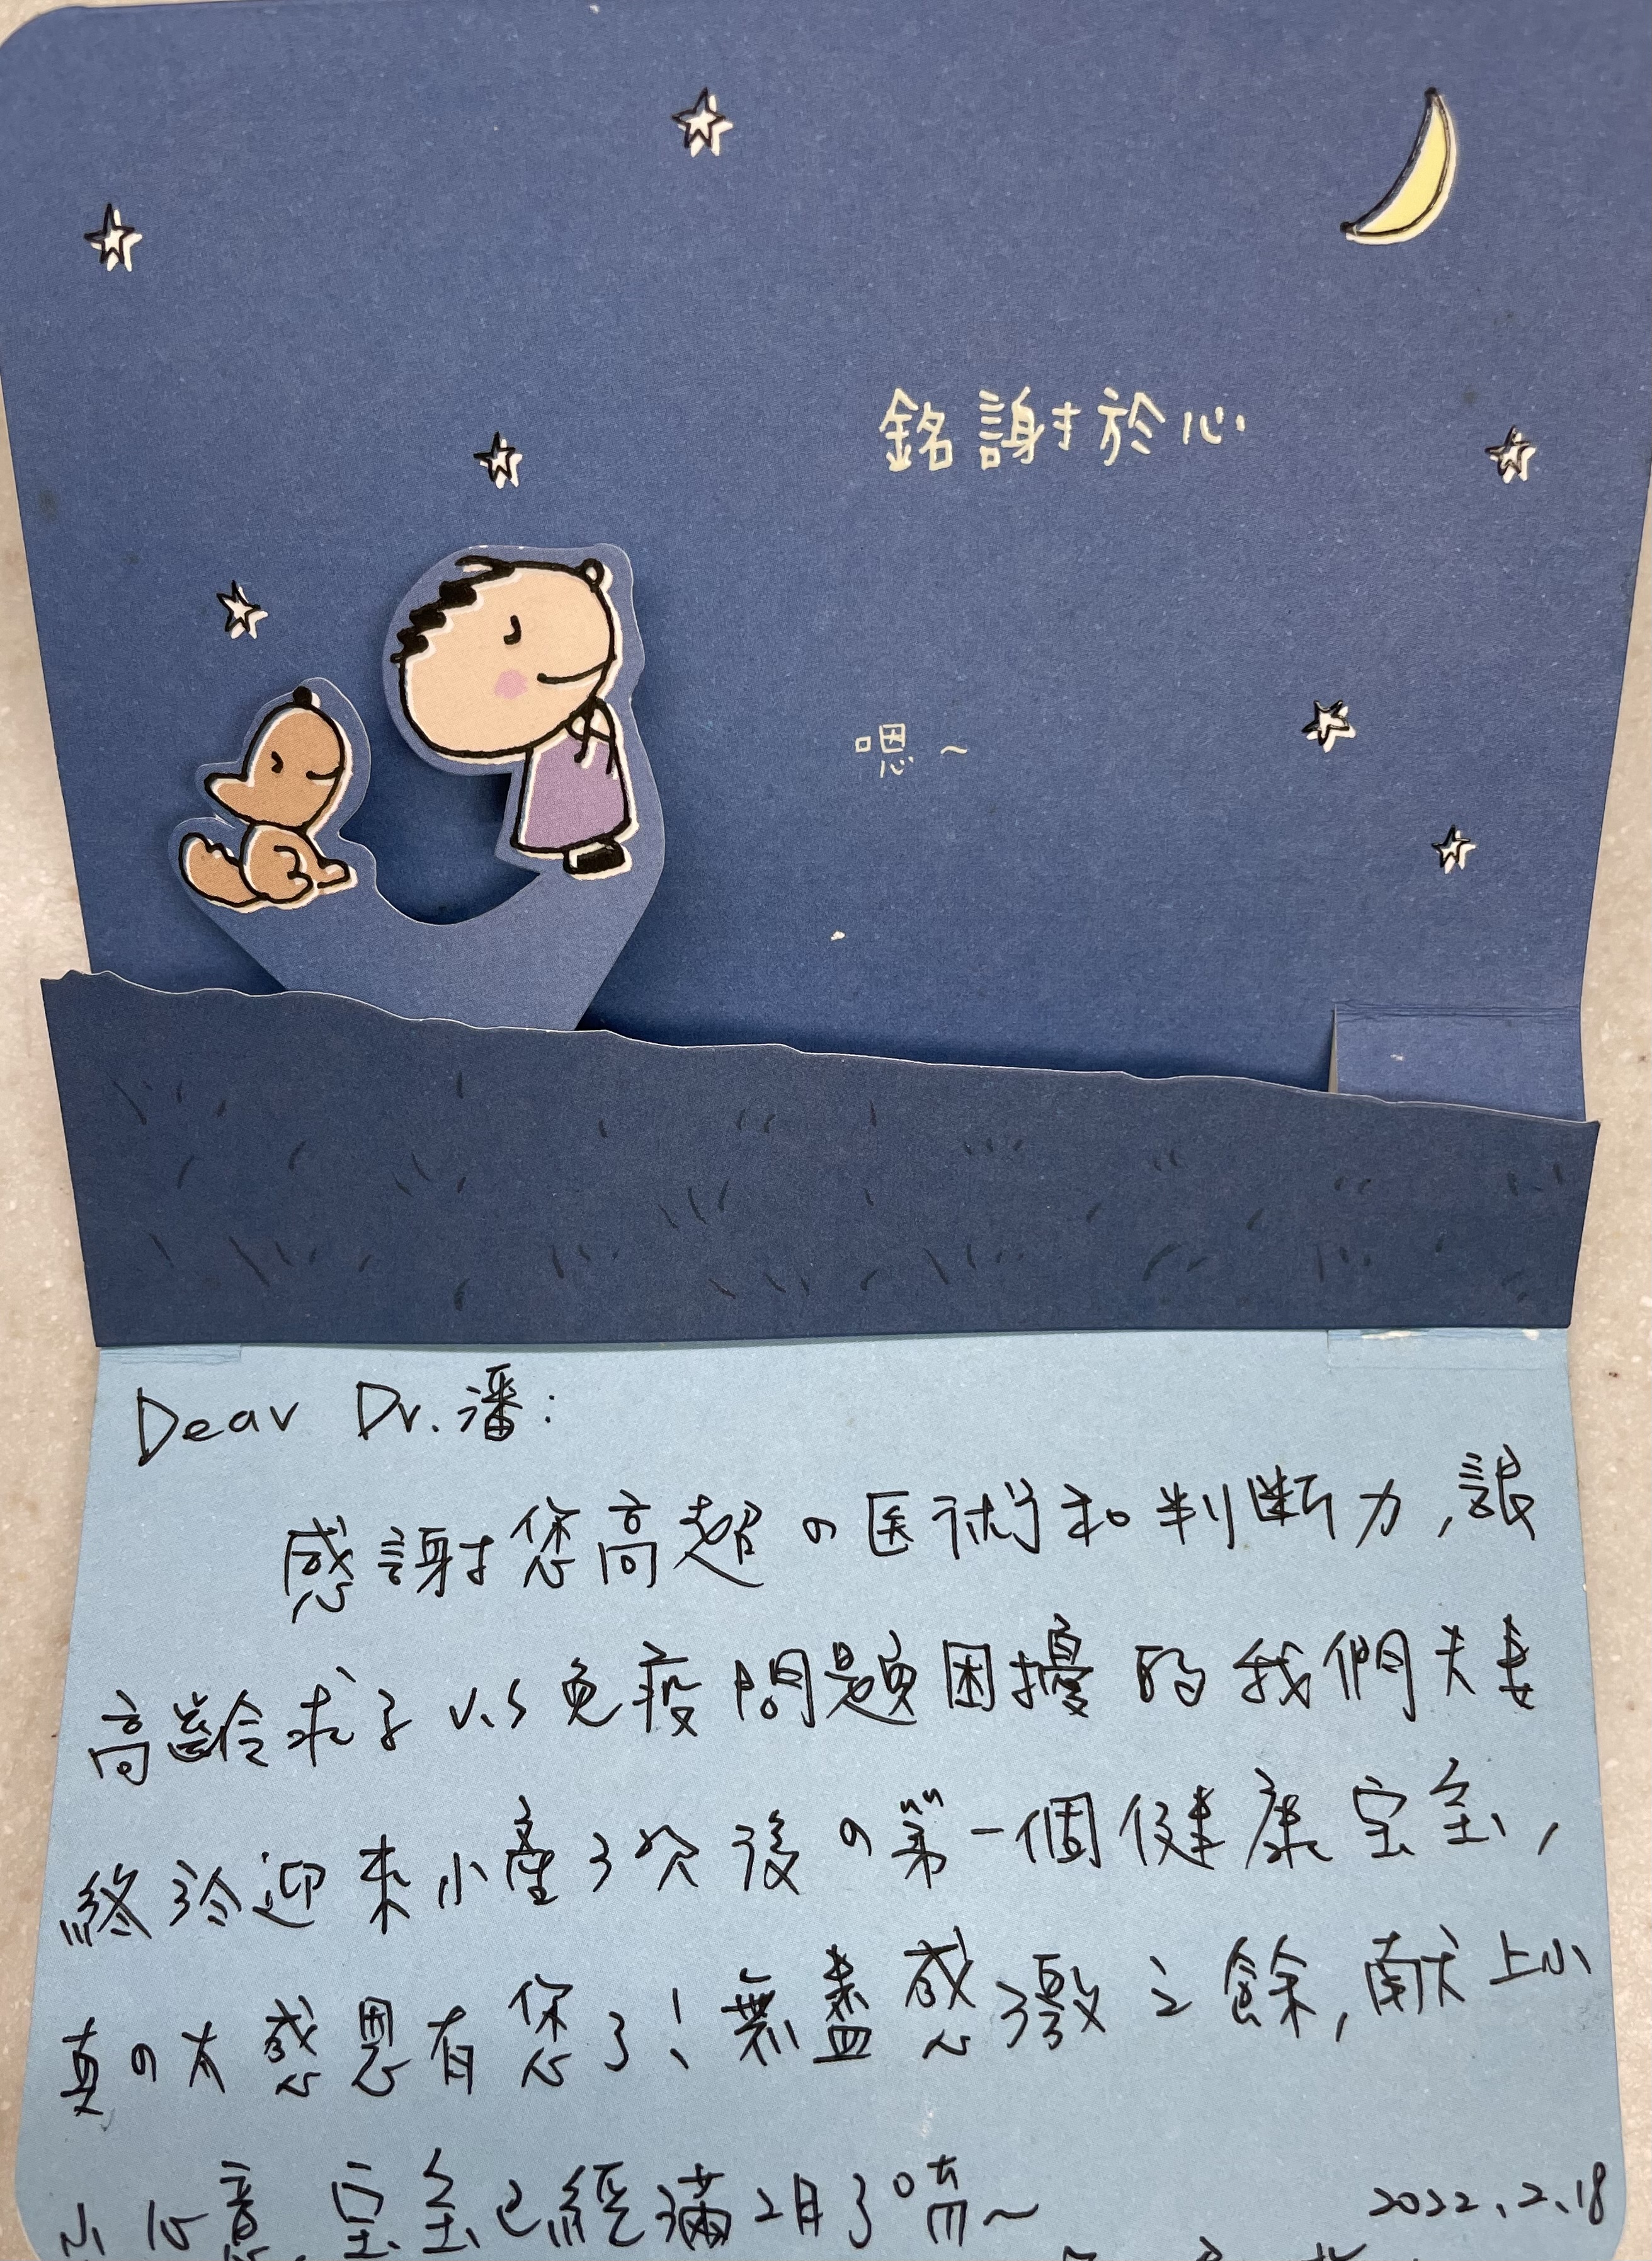 銘謝於心
嗯~
Dear Dr.潘:
感謝您高超の医術和判断力,讓
高齡求子以免疫問題困擾的我們夫妻
終於迎來小產3次後の第一個健康宝宝,
真の太感恩有您了!無盡感激之餘,献上小
小心意,宝宝已經滿2月了唷~
2022.2.18